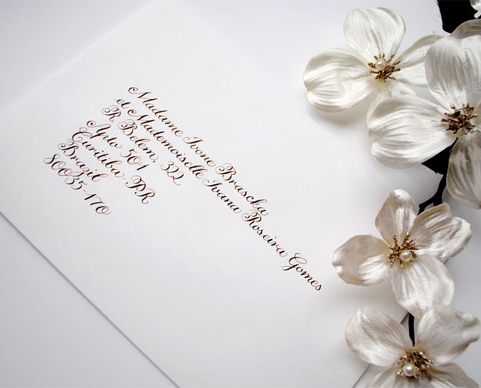 Madame Ivone Brascka
et Mademoiselle Ivana Roseira Gomes
R. Belem, 322
Apto. 501
Curitiba, PR
Brazil
80035-170